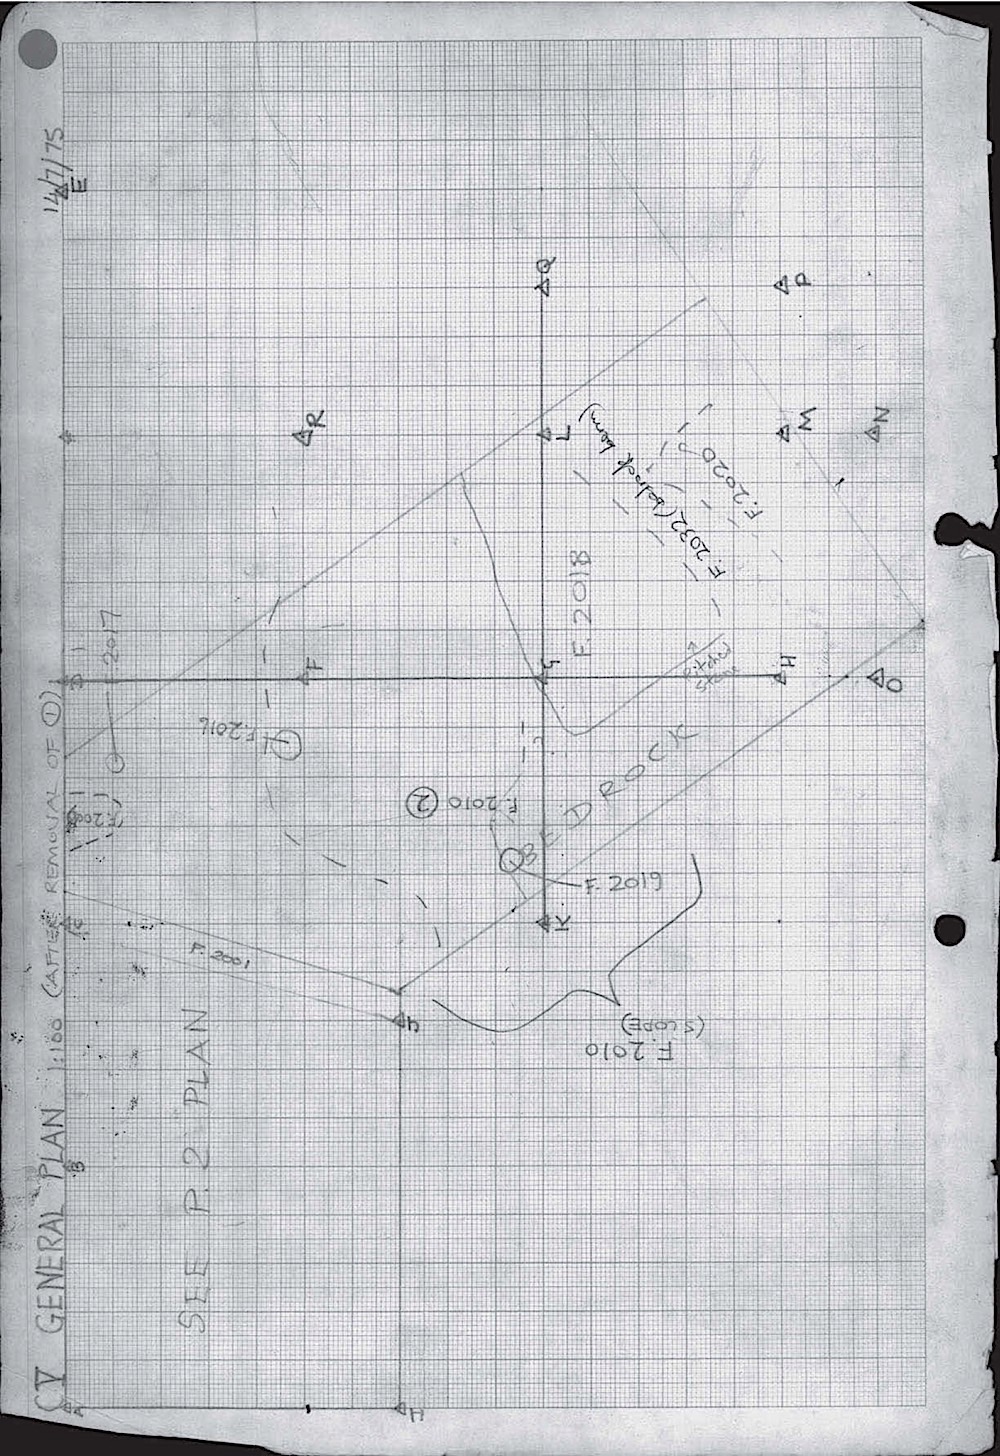 CV GENERAL PLAN 1:100 (AFTER REMOVAL OF ①) 14/7/75
A
B
C
D
E
SEE P. 2 PLAN
F. 2001
2017
F. 2016
F
R
H
F. 2010 ②
G
L
Q
K
BEDROCK
F. 2019
F. 2018
F. 2032 (bedrock berm)
F. 2020 ?
Pitched
Stone
F. 2010
(SLOPE)
H
M
P
O
N